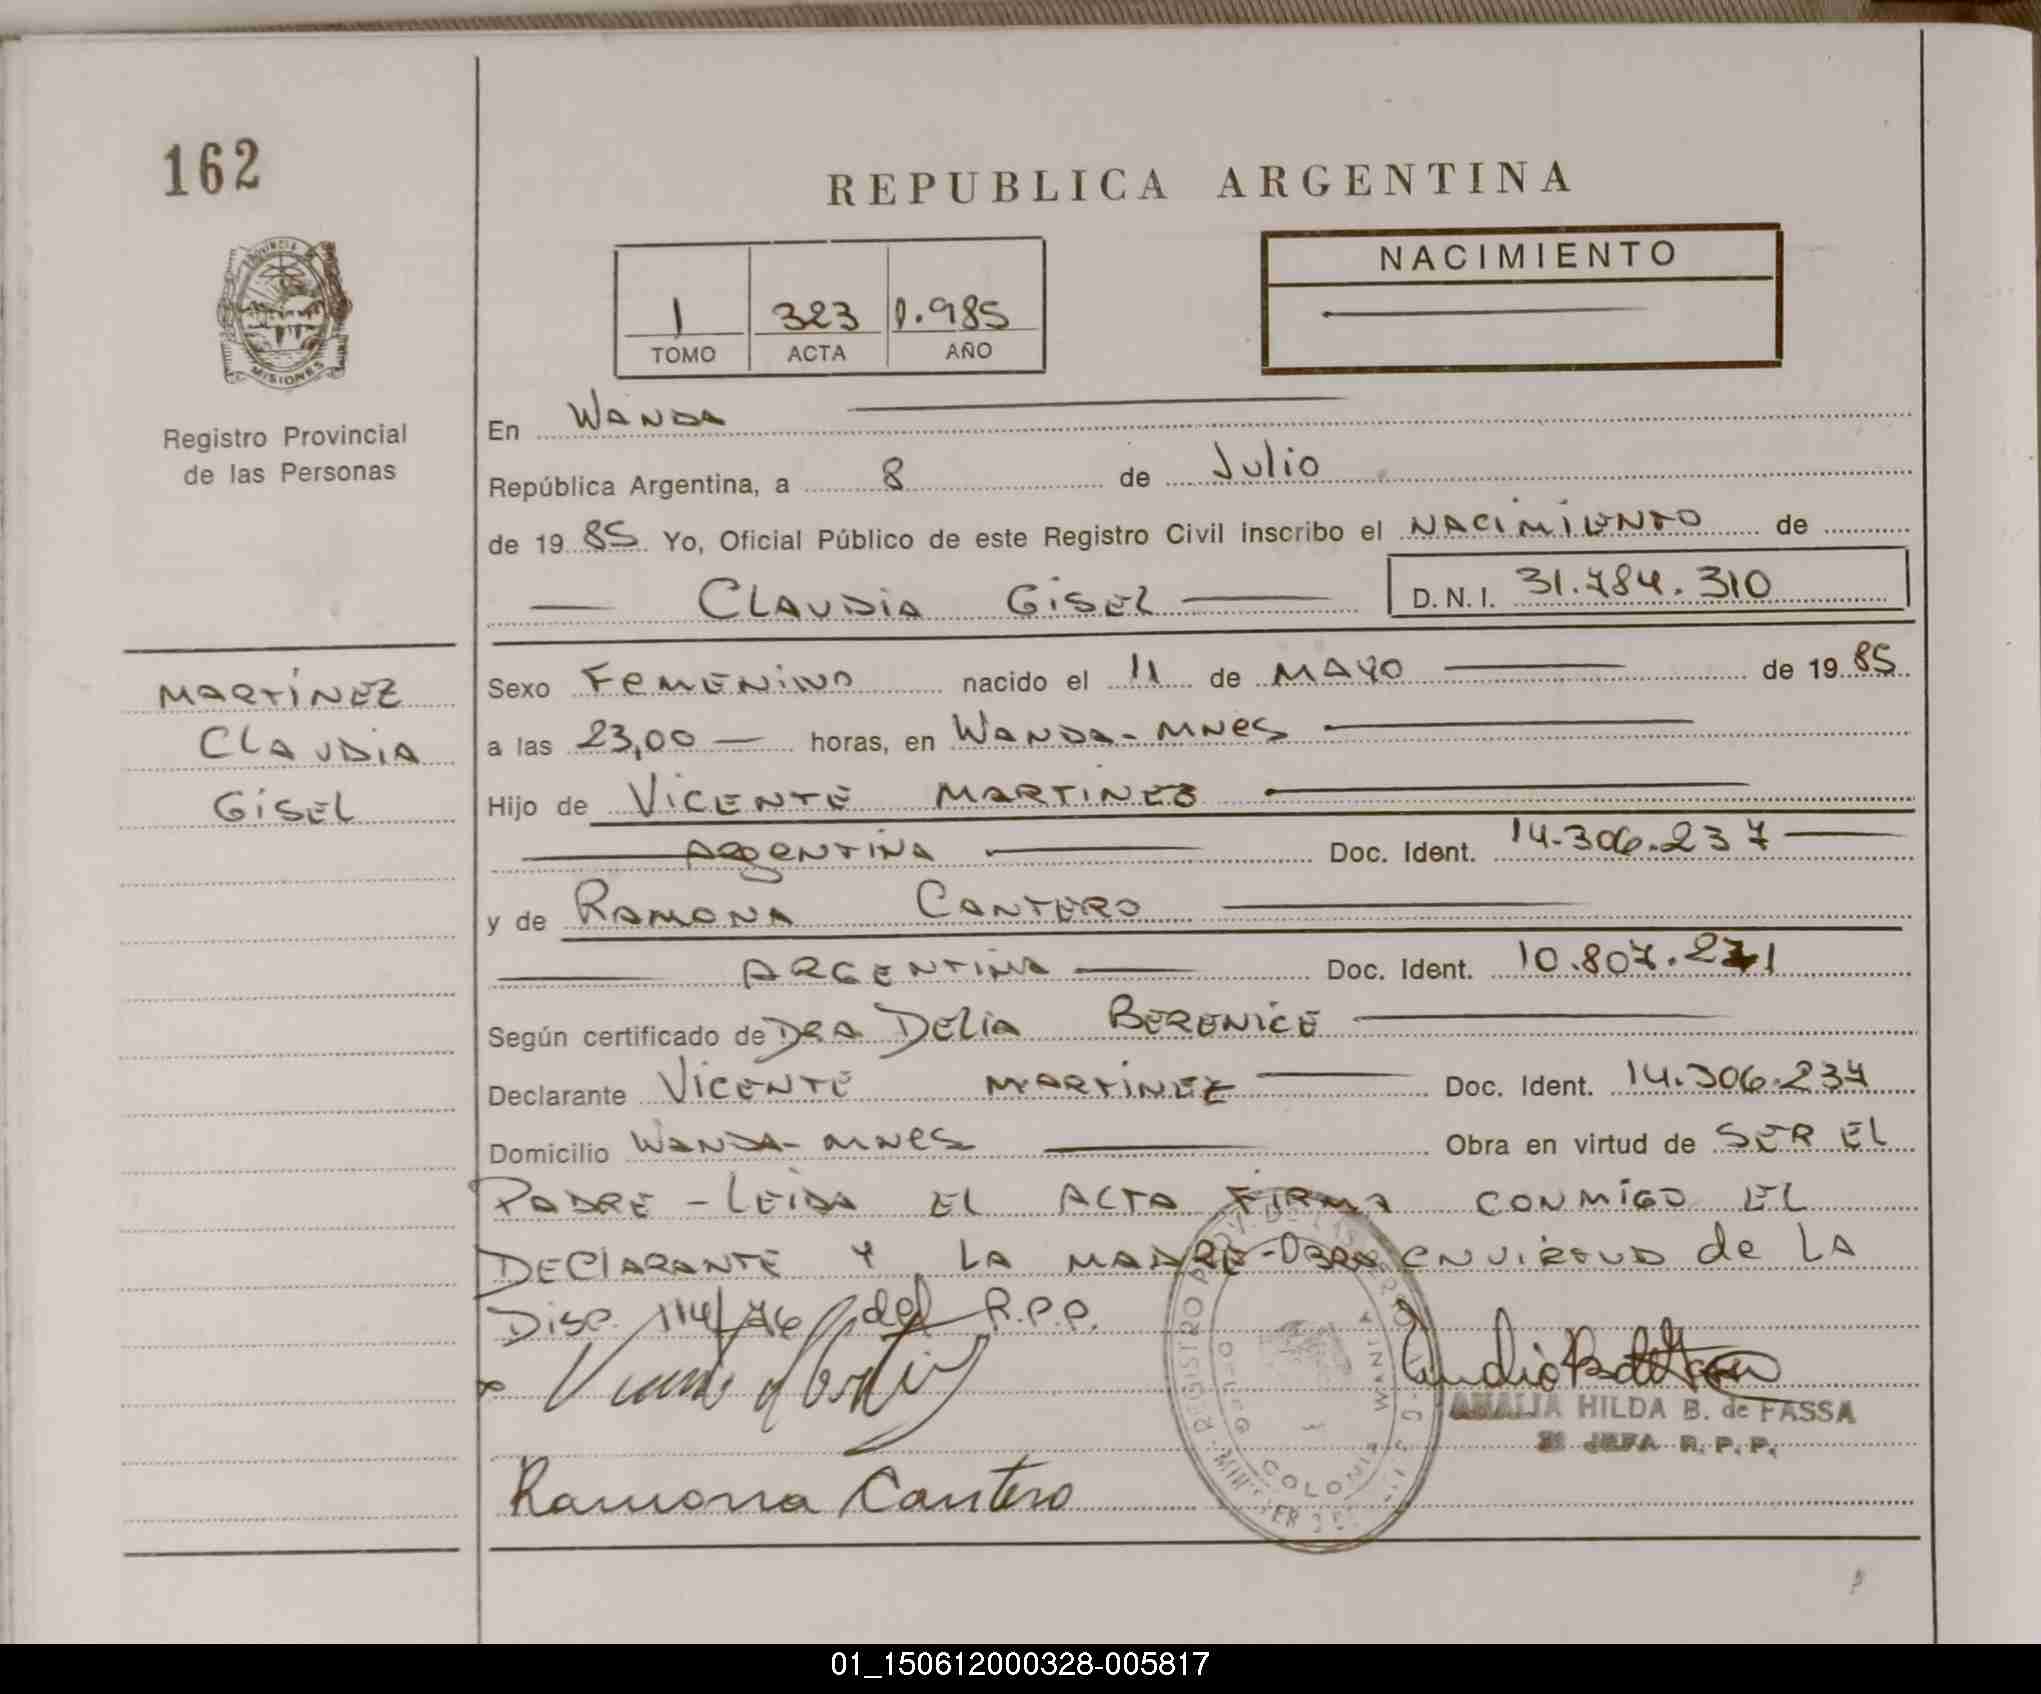 162
REPUBLICA ARGENTINA
PROVINCIA
MISIONES
Registro Provincial
de las Personas
1 323 1.985
TOMO ACTA AÑO
NACIMIENTO
En WANDA
República Argentina, a 8 de Julio
de 19 85 Yo, Oficial Público de este Registro Civil inscribo el NACIMIENTO de
CLAUDIA GISEL D.N.I. 31.784.310
MARTÍNEZ
CLAUDIA
GISEL
Sexo FEMENINO nacido el 11 de MAYO de 19 85
a las 23,00 horas, en WANDA-MNES
Hijo de VICENTE MARTINEZ
ARGENTINA Doc. Ident. 14.306.237
y de RAMONA CANTERO
ARGENTINA Doc. Ident. 10.807.271
Según certificado de DRA DELIA BERENICE
Declarante VICENTE MARTÍNEZ Doc. Ident. 14.306.237
Domicilio WANDA-MNES Obra en virtud de SER EL
PADRE - LEIDA EL ACTA FIRMA CONMIGO EL
DECLARANTE Y LA MADRE-OBRA EN VIRTUD de LA
DISP. 114/76 del R.P.P.
AMALIA HILDA B. de FASSA
JEFA R.P.P.
COLONIA WANDA
Ramona Cantero
01_150612000328-005817